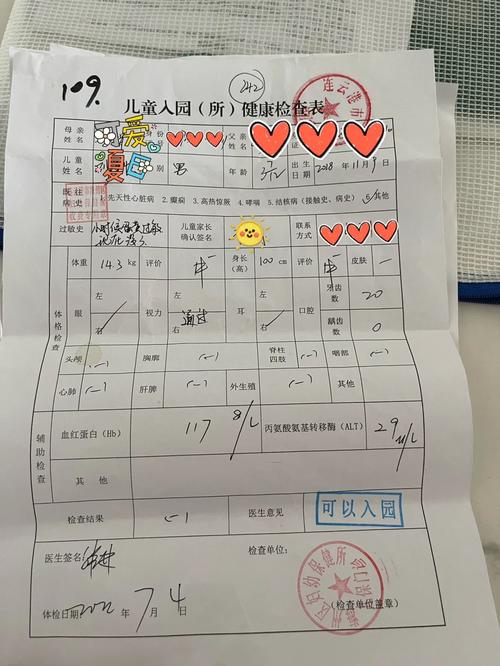 109.
242
连云港市
儿童入园（所）健康检查表
母亲姓名 父亲
可爱夏因
儿童姓名 别 男 年龄 3 出生日期 2018 11月9
既往病史 1.先天性心脏病 2.癫痫 3.高热惊厥 4.哮喘 5.结核病（接触史、病史） 6.其他
过敏史 小时候 过敏 现在 儿童家长确认签名 联系方式
体格检查
体重 14.3 kg 评价 中 身长（高） 100 cm 评价 中 皮肤 —
眼 左 / 右 视力 左 右 通过 耳 左 / 右 口腔 牙齿数 20
龋齿数 0
头颅 (-) 胸廓 (-) 脊柱四肢 (-) 咽部 (-)
心肺 (-) 肝脾 (-) 外生殖 (-) 其他
辅助检查
血红蛋白（Hb） 117 g/L 丙氨酸氨基转移酶（ALT） 29 u/L
其 他
检查结果 (-) 医生意见 可以入园
医生签名 检查单位：
区妇幼保健所
体检日期 2022 年 7 月 4 日 （检查单位盖章）